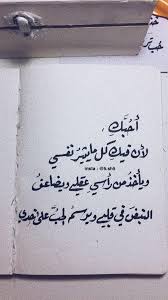 أحبك،
لأن فيك كل ما نفسي
insta :
ويأخذ من رأسي عقلي ويضاعف
النبض في قلبي ويرسم الحب على خدي